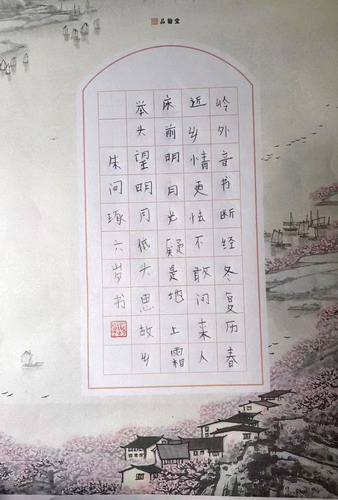 品翰堂
岭外音书断经冬复历春
近乡情更怯不敢问来人
床前明月光疑是地上霜
举头望明月低头思故乡
朱问琢六岁书